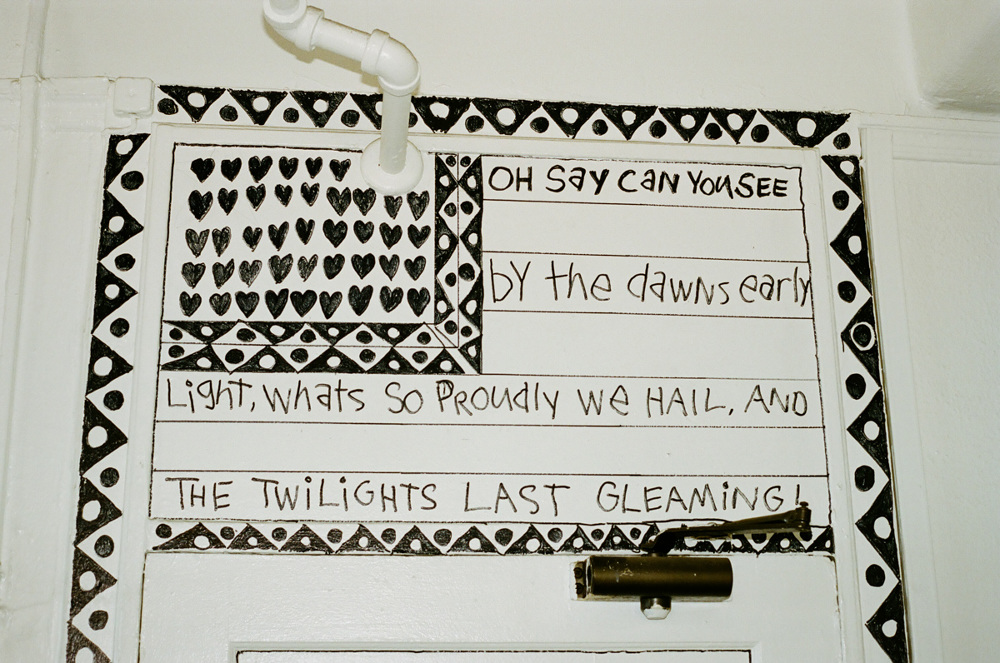 OH Say CAN YOU SEE
by the dawns early
Light, whats So PRoudly we HAIL, AND
THE TWiLiGHTS LAST GLEAMiNG!